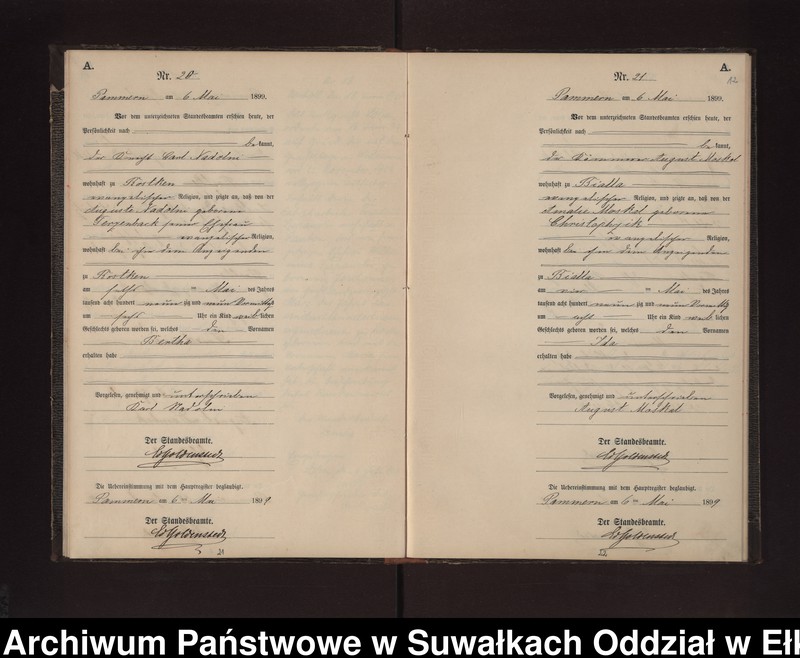 A.
Nr. 20
Pammern am 6 Mai 1899.
Vor dem unterzeichneten Standesbeamten erschien heute, der
Persönlichkeit nach
bekannt,
der Knecht Carl Nadolm
wohnhaft zu Koslken
evangelischer Religion, und zeigte an, daß von der
Auguste Nadolm geborene
seiner Ehefrau
evangelischer Religion,
wohnhaft bei ihm dem Anzeigenden
zu Koslken
am ten Mai des Jahres
tausend acht hundert neunzig und neun Vormittags
um Uhr ein Kind weiblichen
Geschlechts geboren worden sei, welches den Vornamen
Bertha
erhalten habe
Vorgelesen, genehmigt und unterschrieben
Karl Nadolm
Der Standesbeamte.
Die Uebereinstimmung mit dem Hauptregister beglaubigt.
Pammern am 6ten Mai 1899
Der Standesbeamte.
21
A.
Nr. 21
Pammern am 6 Mai 1899.
Vor dem unterzeichneten Standesbeamten erschien heute, der
Persönlichkeit nach
bekannt,
der Kämmerer August Moskel
wohnhaft zu Bialla
evangelischer Religion, und zeigte an, daß von der
Amalie Moskel geborene
Christophzik
evangelischer Religion,
wohnhaft bei ihm dem Anzeigenden
zu Bialla
am vier ten Mai des Jahres
tausend acht hundert neunzig und neun Vormittags
um acht Uhr ein Kind weiblichen
Geschlechts geboren worden sei, welches den Vornamen
Ida
erhalten habe
Vorgelesen, genehmigt und unterschrieben
August Moskel
Der Standesbeamte.
Die Uebereinstimmung mit dem Hauptregister beglaubigt.
Pammern am 6ten Mai 1899
Der Standesbeamte.
Archiwum Państwowe w Suwałkach Oddział w Ełk